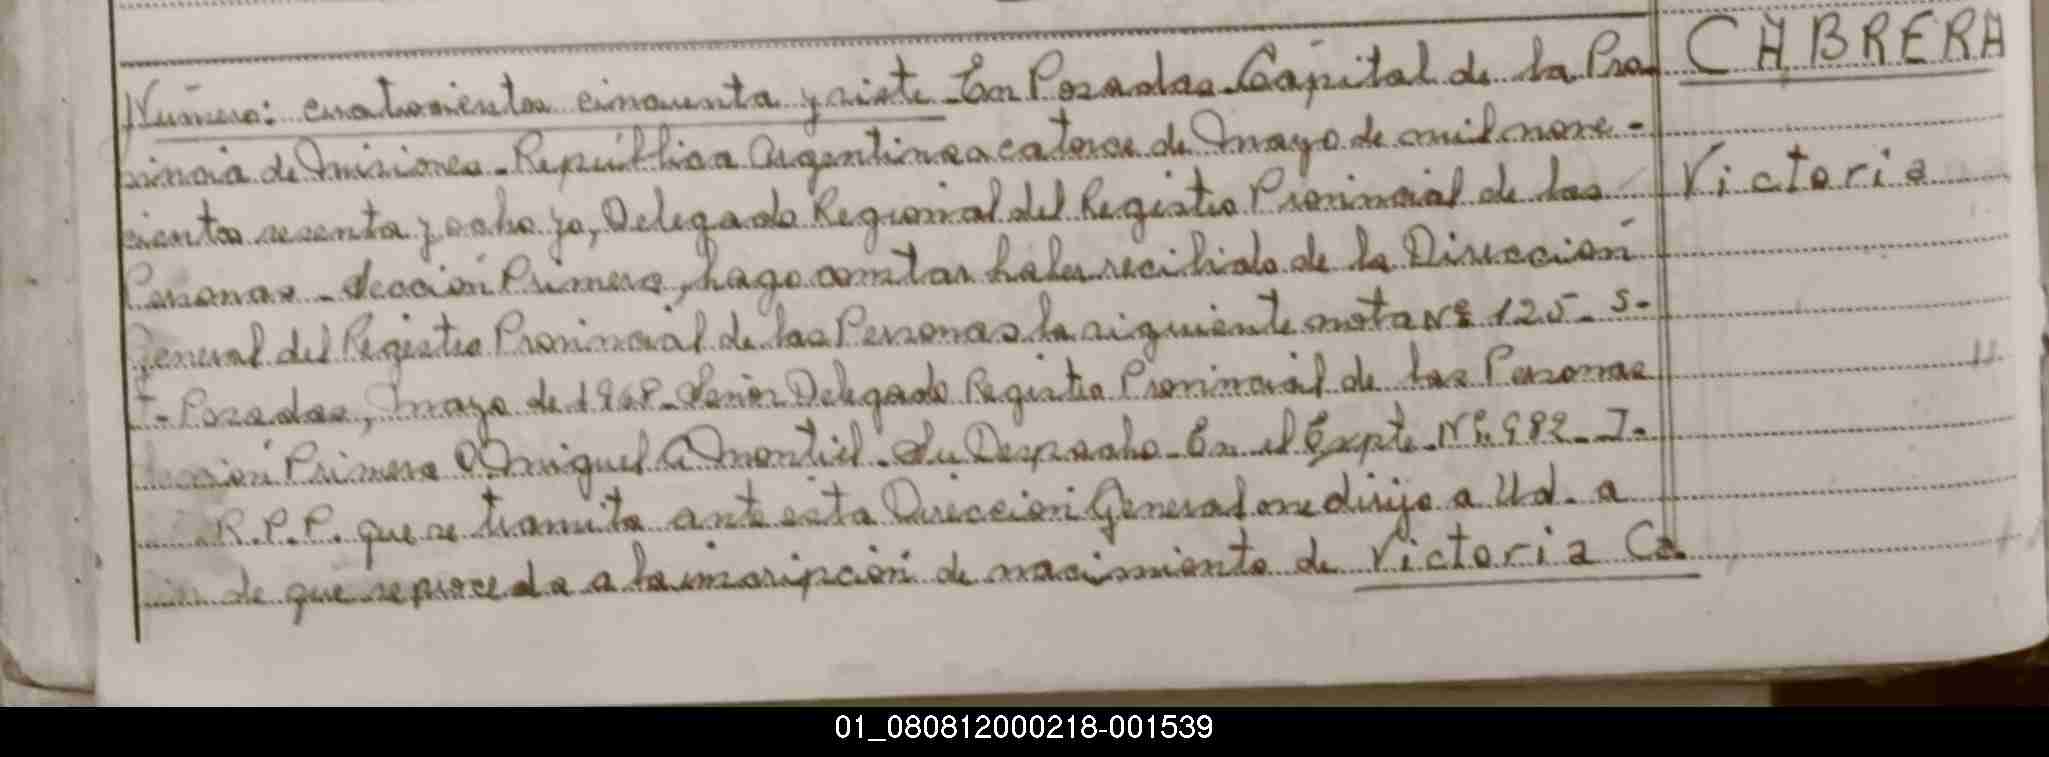 CABRERA
Número: cuatrocientos cincuenta y siete En Posadas Capital de la Pro
vincia de Misiones - República Argentina a catorce de Mayo de mil nove-
Victoria
cientos sesenta y ocho yo, Delegado Regional del Registro Provincial de las
Personas - Sección Primera, hago constar haber recibido de la Dirección
General del Registro Provincial de las Personas la siguiente nota Nº 125 - S-
T- Posadas, Mayo de 1968 - Señor Delegado Registro Provincial de las Personas
Sección Primera D Miguel A Montiel - Su Despacho - En el Expte. Nº 982 - J-
R.P.P. que se tramita ante esta Dirección General me dirijo a Ud. a
de que se proceda a la inscripción de nacimiento de Victoria Ca
01_080812000218-001539